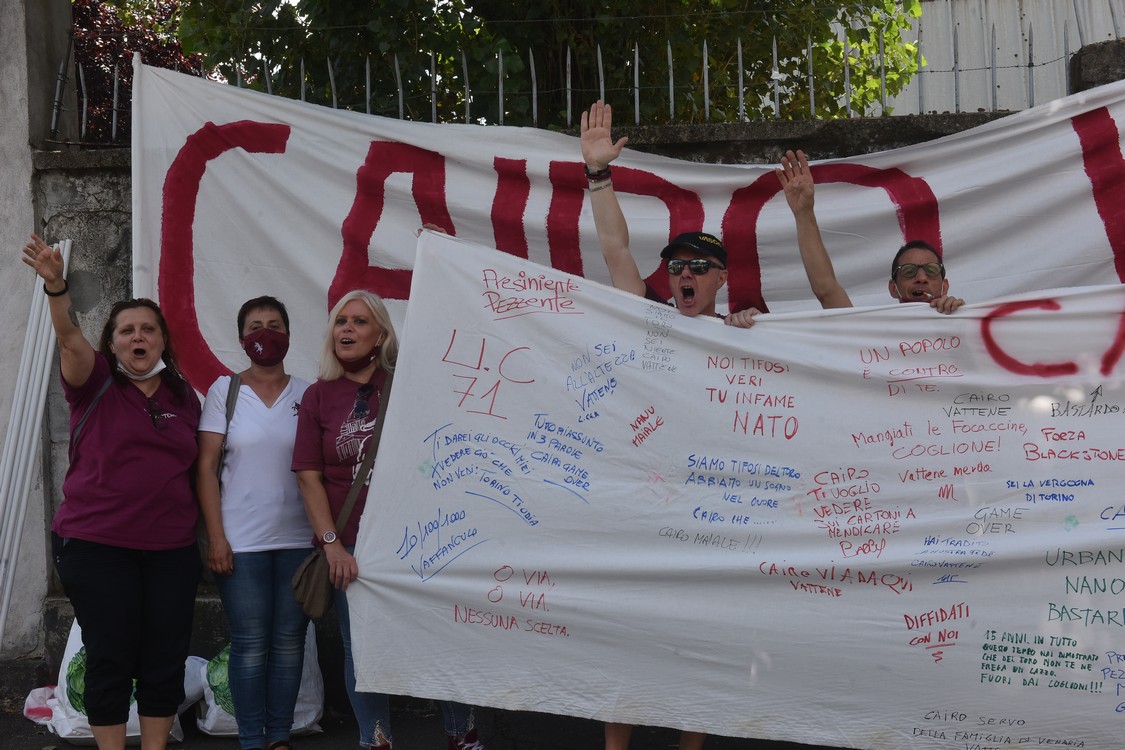 CAIRO
Presiniente
Pezzente
U.C
71
SIAMO
TORO
NON
SEI
NIENTE
CAIRO
VATTENE
NON SEI
ALL'ALTEZZA
VATTENE
NANU
MAIALE
NOI TIFOSI
VERI
TU INFAME
NATO
UN POPOLO
È CONTRO
DI TE.
CAIRO
VATTENE
BASTARDO
TUTO RIASSUNTO
IN 3 PAROLE
CAIRO GAME
OVER
Ti DAREI GLI OCCHI MIEI
X VEDERE CIÒ CHE
NON VEDI: TORINO T'ODIA
SIAMO TIFOSI DEL TORO
ABBIAMO UN SOGNO
NEL CUORE
CAIRO CHE .....
CAIRO MAIALE !!!
Mangiati le Focaccine,
COGLIONE!
Vattene merda
FORZA
BLACKSTONE
SEI LA VERGOGNA
DI TORINO
CAIRO
Ti VOGLIO
VEDERE
SUI CARTONI A
MENDICARE
GAME
OVER
HAI TRADITO
CAIRO VATTENE
10/100/1000
VAFFANCULO
O VIA,
O VIA.
NESSUNA SCELTA.
CAIRO VIA DA QUI
VATTENE
DIFFIDATI
CON NOI
URBAN
NANO
BASTAR
15 ANNI. IN TUTTO
QUESTO TEMPO HAI DIMOSTRATO
CHE DEL TORO NON TE NE
FREGA UN CAZZO.
FUORI DAI COGLIONI!!!
CAIRO SERVO
DELLA FAMIGLIA DI VENARIA